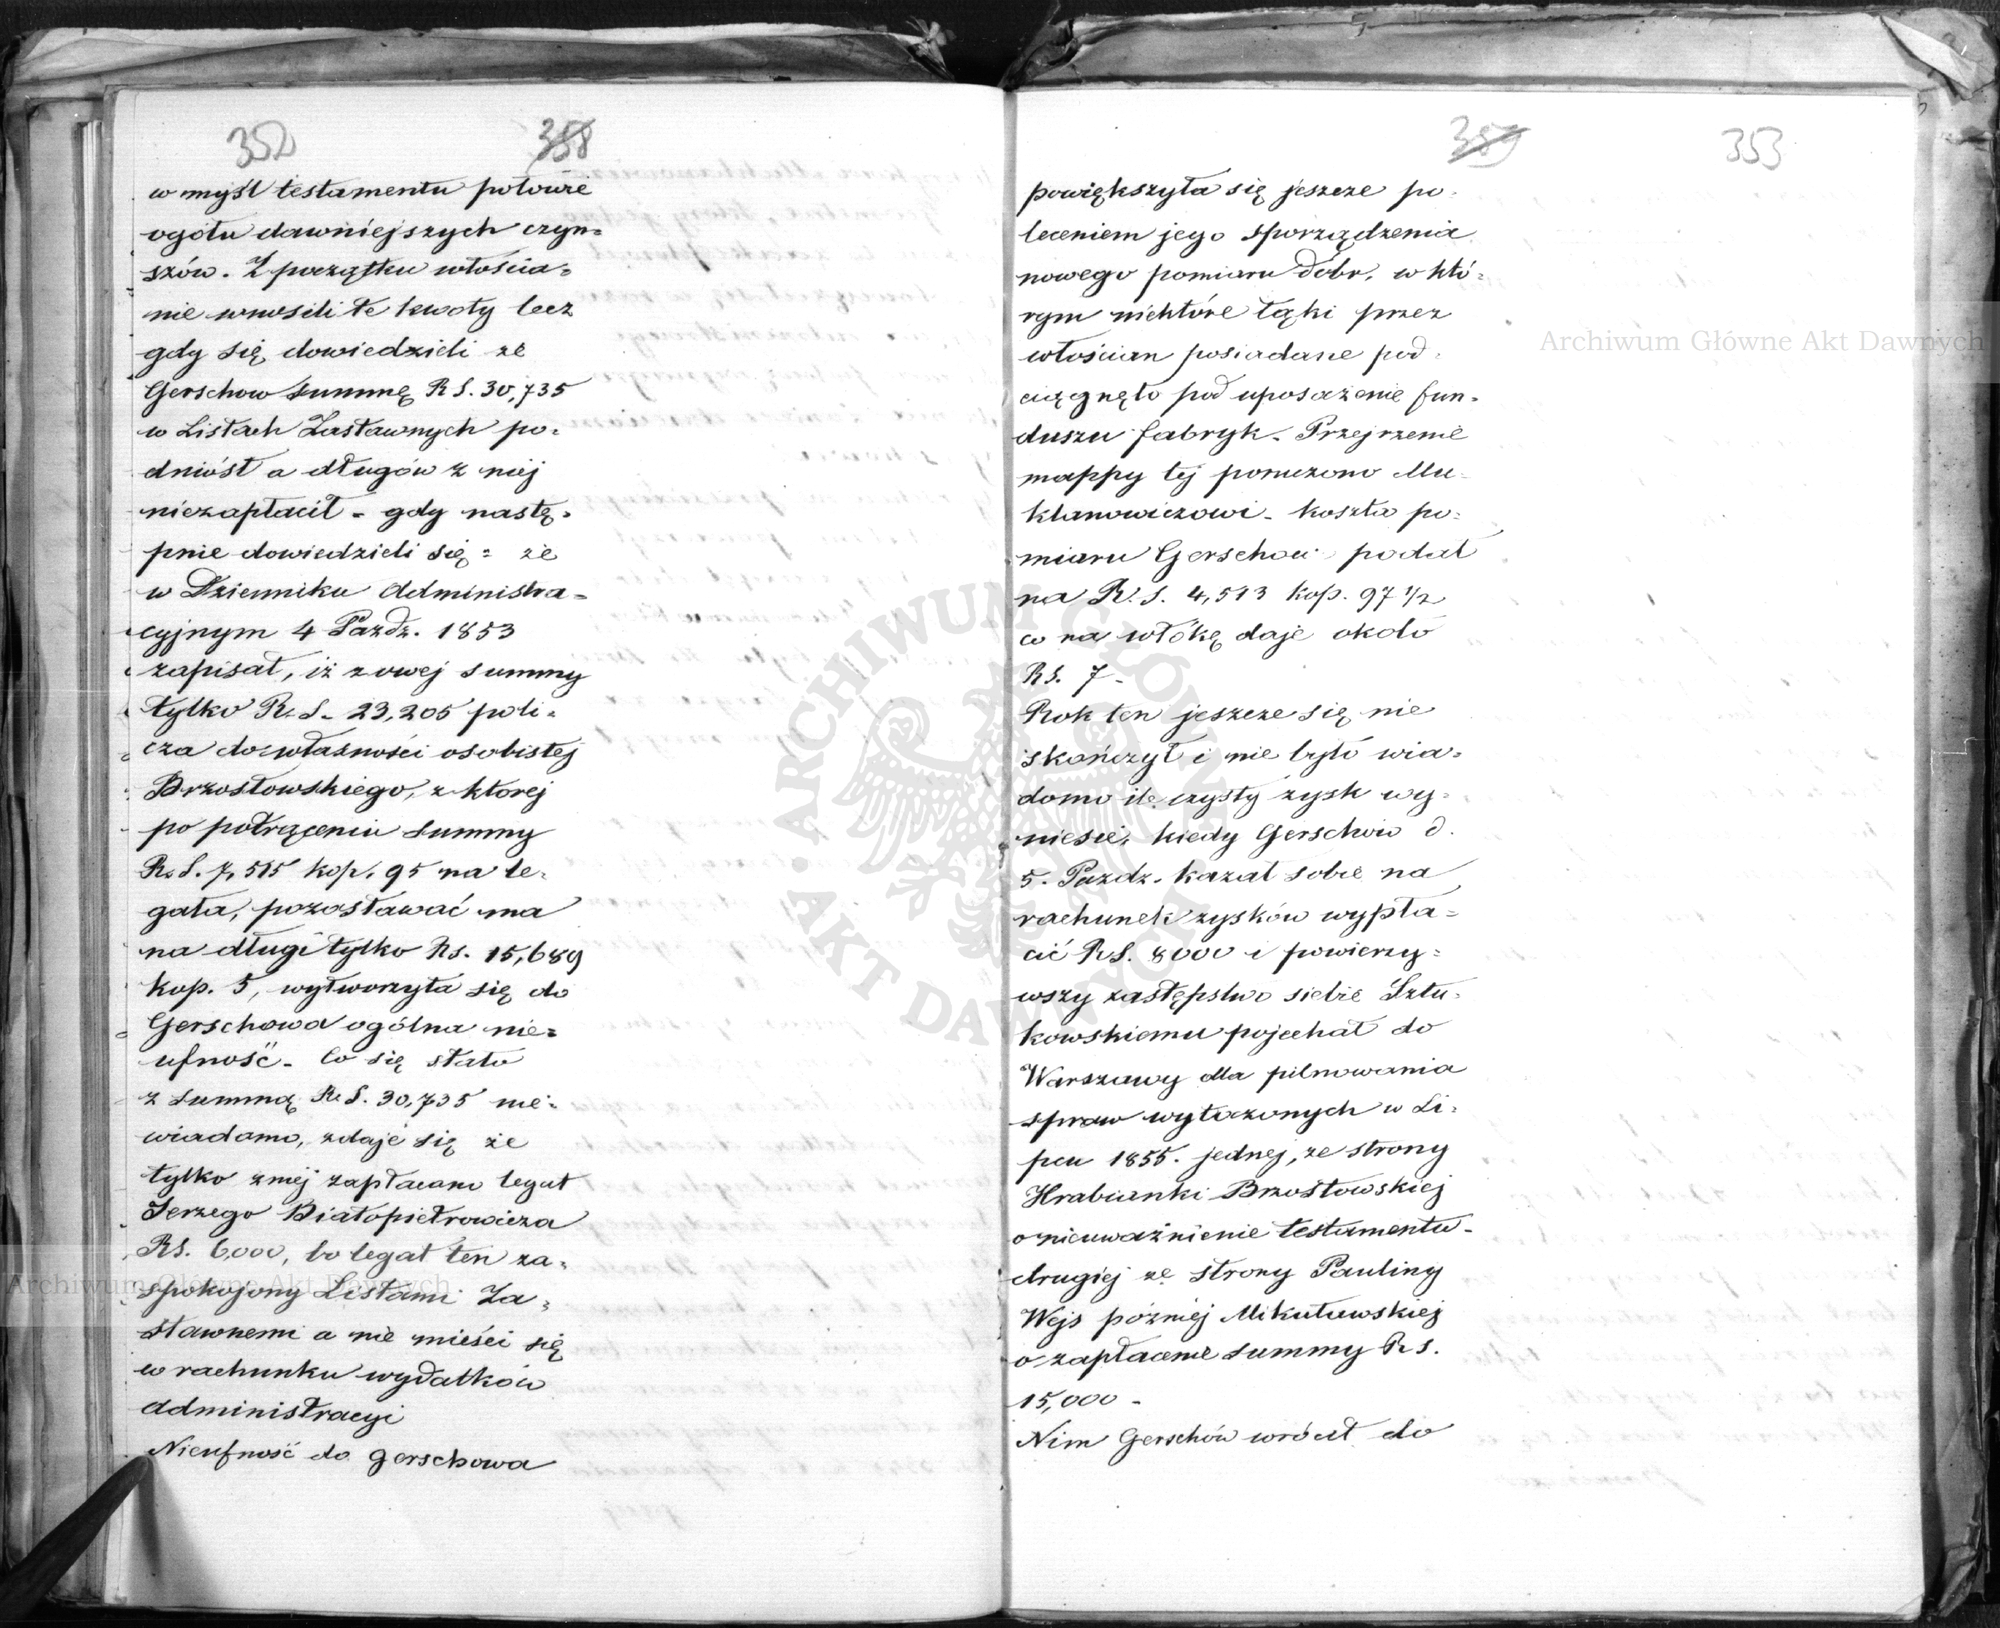 352 358
w myśl testamentu połowie
ogółu dawniejszych czyn=
szów. Z początku włościa=
nie wnosili te kwoty lecz
gdy się dowiedzieli że
Gerschow summę R S. 30,735
w Listach Zastawnych po=
dniósł a długów z niej
niezapłacił - gdy nastę=
pnie dowiedzieli się = że
w Dzienniku Administra=
cyjnym 4 Paźdz. 1853
zapisał, iż z owej summy
tylko R. S. 23,205 poli=
cza do własności osobistej
Brzostowskiego, z której
po potrąceniu summy
R. S. 7,515 kop. 95 na le=
gata, pozostawać ma
na długi tylko Rs. 15,689
kop. 5, wytworzyła się do
Gerschowa ogólna nie=
ufność. Co się stało
z summą R S. 30,735 nie=
wiadomo, zdaje się że
tylko z niej zapłacono legat
Jerzego Białopietrowicza
RS. 6,000, bo legat ten za=
spokojony Listami Za=
stawnemi a nie mieści się
w rachunku wydatków
administracyi
Nieufność do Gerschowa
359 353
powiększyła się jeszcze po=
leceniem jego sporządzenia
nowego pomiaru dóbr, w któ=
rym niektóre łąki przez
włościan posiadane pod=
ciągnęło pod uposażenie fun=
duszu fabryk. Przejrzenie
mappy tej poruczono Mu=
klanowiczowi - koszta po=
miaru Gerschow podał
na R. S. 4,513 kop. 97 1/2
co na włókę daje około
RS. 7 -
Rok ten jeszcze się nie
skończył i nie było wia=
domo ile czysty zysk wy=
niesie, kiedy Gerschow d.
5. Paźdz. kazał sobie na
rachunek zysków wypła=
cić RS. 8000 i powierzy=
wszy zastępstwo siebie Sztu=
kowskiemu pojechał do
Warszawy dla pilnowania
spraw wytoczonych w Li=
pcu 1855. jednej, ze strony
Hrabianki Brzostowskiej
o nieuważnienie testamentu -
drugiej ze strony Pauliny
Wejs później Mikułowskiej
o zapłacenie summy R S.
15,000 -
Nim Gerschów wrócił do
Archiwum Główne Akt Dawnych
Archiwum Główne Akt Dawnych
ARCHIWUM GŁÓWNE AKT DAWNYCH